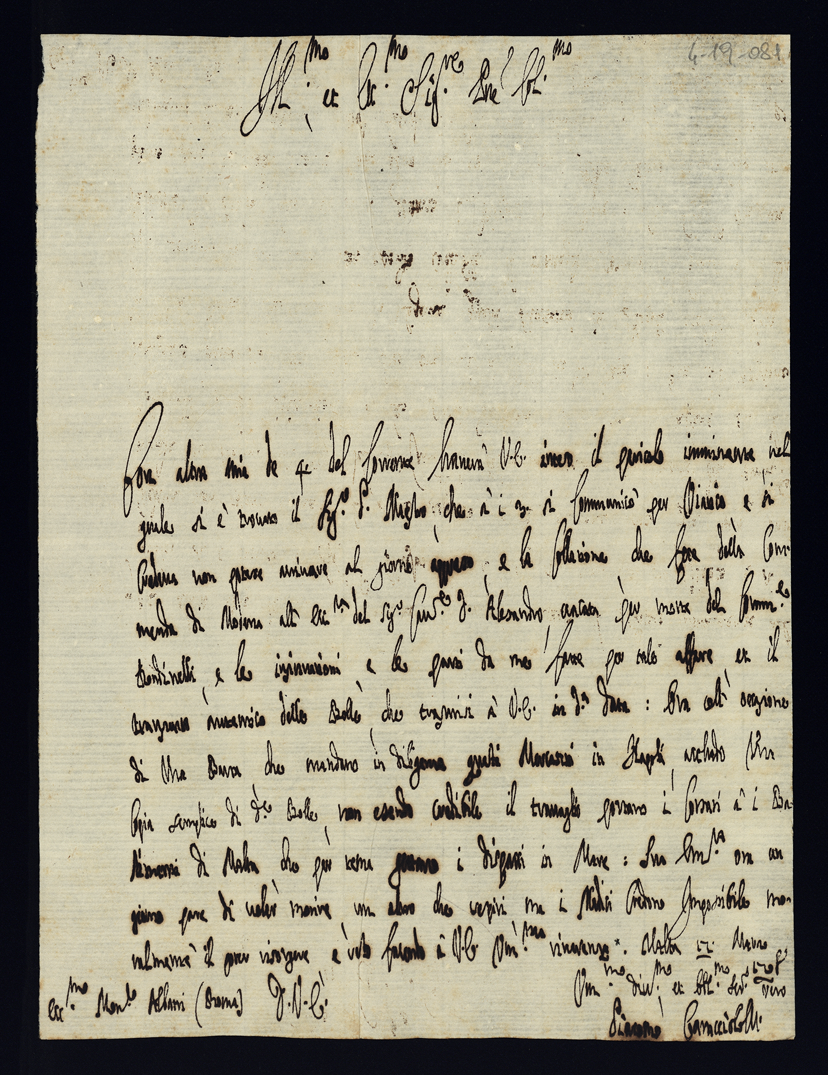 4-19-081
Ill.mo et Ecc.mo Sig.re P̄ne Col.mo
Con altra mia de 4 del Corrente haverà V.E. inteso il pericolo imminente nel
quale si è trovato il Sig.r G. Mastro che à i 3. si Communicò per Viatico e si
Credeva non potesse arrivare al giorno appresso, e la Collazione che fece della Com-
menda di Modena all' Ecc.mo del Sig.r Cav.re D. Alesandro, vacata per morte del Comm.re
Bondinelli, e le insinuazioni e le parti da me fatte per tale affare, et il
transunto autentico delle Bolle che trasmisi à V.E. in d.a data: Ora coll' occasione
di Una Barca che mandano in diligenza questi Mercanti in Napoli, accludo Una
Copia semplice di d.e Bolle, non essendo credibile il travaglio portano i Corsari à i Ba-
stimenti di Malta che per tema gettano i dispacci in Mare: Sua Em.za ora un
giorno pare di voler morire un altro che respiri ma i Medici Credono Impossibile mo-
ralmente il poter risorgere e resto facendo à V.E. Um.ma riverenza. Malta Marzo
Um.mo Div.mo et Obl.mo Ser.re vero
Ecc.mo Mon.r Albani (Roma) D.V.E.
Giacomo Caracciolo